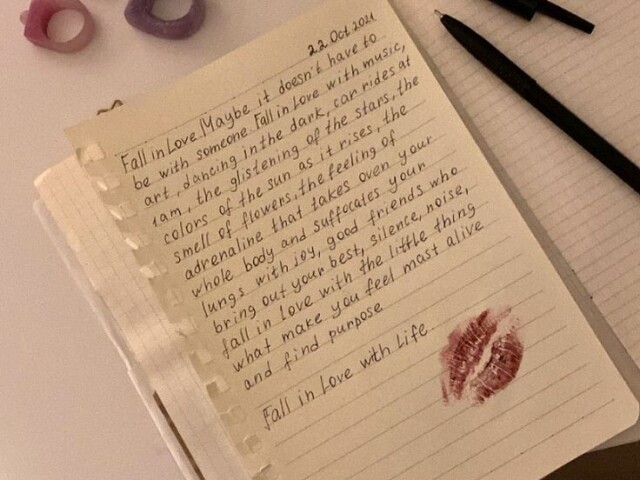 22 Oct 2021
Fall in Love Maybe it doesn't have to
be with someone Fall in Love with music,
art, dancing in the dark, car rides at
1am, the glistening of the stars, the
colors of the sun as it rises, the
smell of flowers, the feeling of
adrenaline that takes over your
whole body and suffocates your
lungs with joy, good friends who
bring out your best, silence, noise,
fall in love with the little thing
what make you feel mast alive
and find purpose
Fall in Love with Life